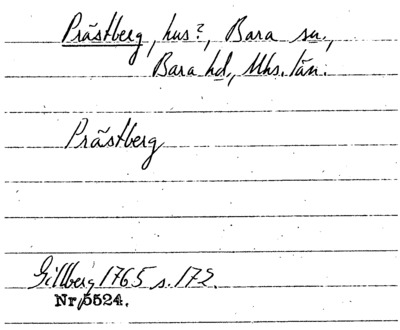 Prästberg, hus?, Bara sn.,
Bara hd., Mhs. län.
Prästberg
Gillberg 1765 s. 172.
Nr 5524.